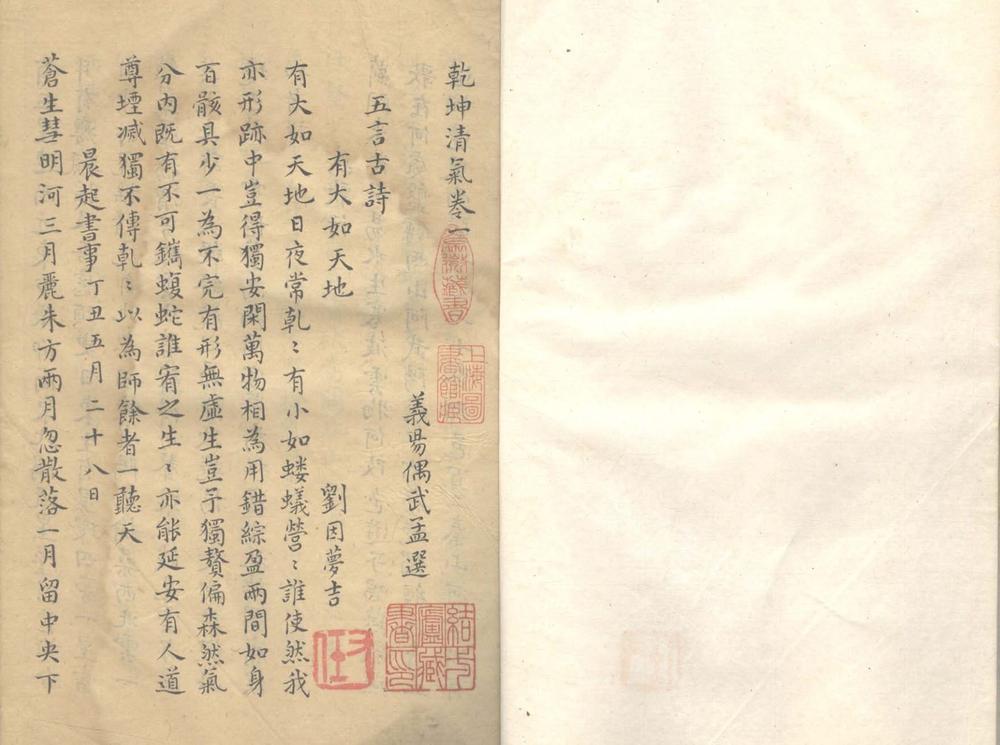 乾坤清氣卷一
義陽偶武孟選
五言古詩
有大如天地
劉因夢吉
有大如天地日夜常乹〻有小如螻蟻營〻誰使然我
亦形跡中豈得獨安閑萬物相為用錯綜盈兩間如身
百骸具少一為不完有形無虛生豈予獨贅偏森然氣
分內既有不可鐫蝮蛇誰宥之生〻亦能延安有人道
尊堙滅獨不傳乹〻以為師餘者一聽天
晨起書事丁丑五月二十八日
蒼生彗明河三月麗朱方兩月忽散落一月留中央下
上海圖
書館藏
結一
廬藏
書印